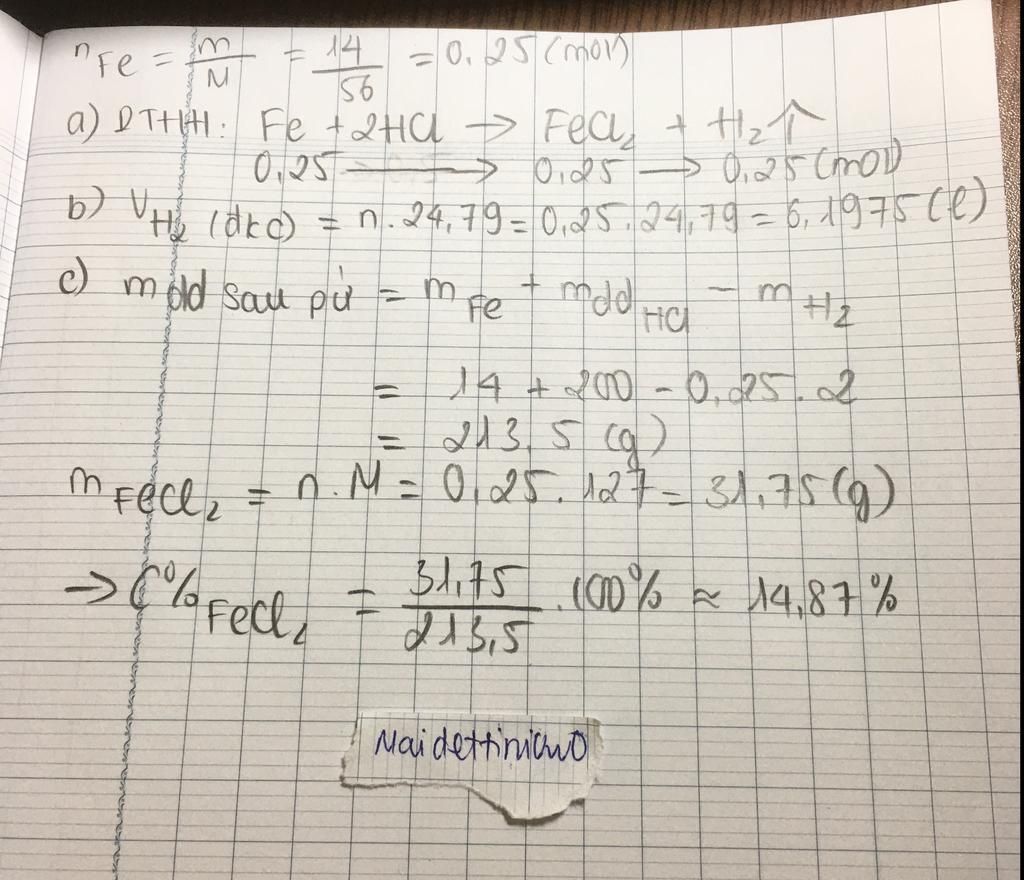 nFe = m/M = 14/56 = 0,25 (mol)
a) PTHH: Fe + 2HCl → FeCl₂ + H₂↑
0,25 → 0,25 → 0,25 (mol)
b) VH₂ (đkc) = n.24,79 = 0,25.24,79 = 6,1975 (l)
c) mdd sau pứ = mFe + mddHCl - mH₂
= 14 + 200 - 0,25.2
= 213,5 (g)
mFeCl₂ = n.M = 0,25.127 = 31,75 (g)
→ C%FeCl₂ = 31,75/213,5 .100% ≈ 14,87%